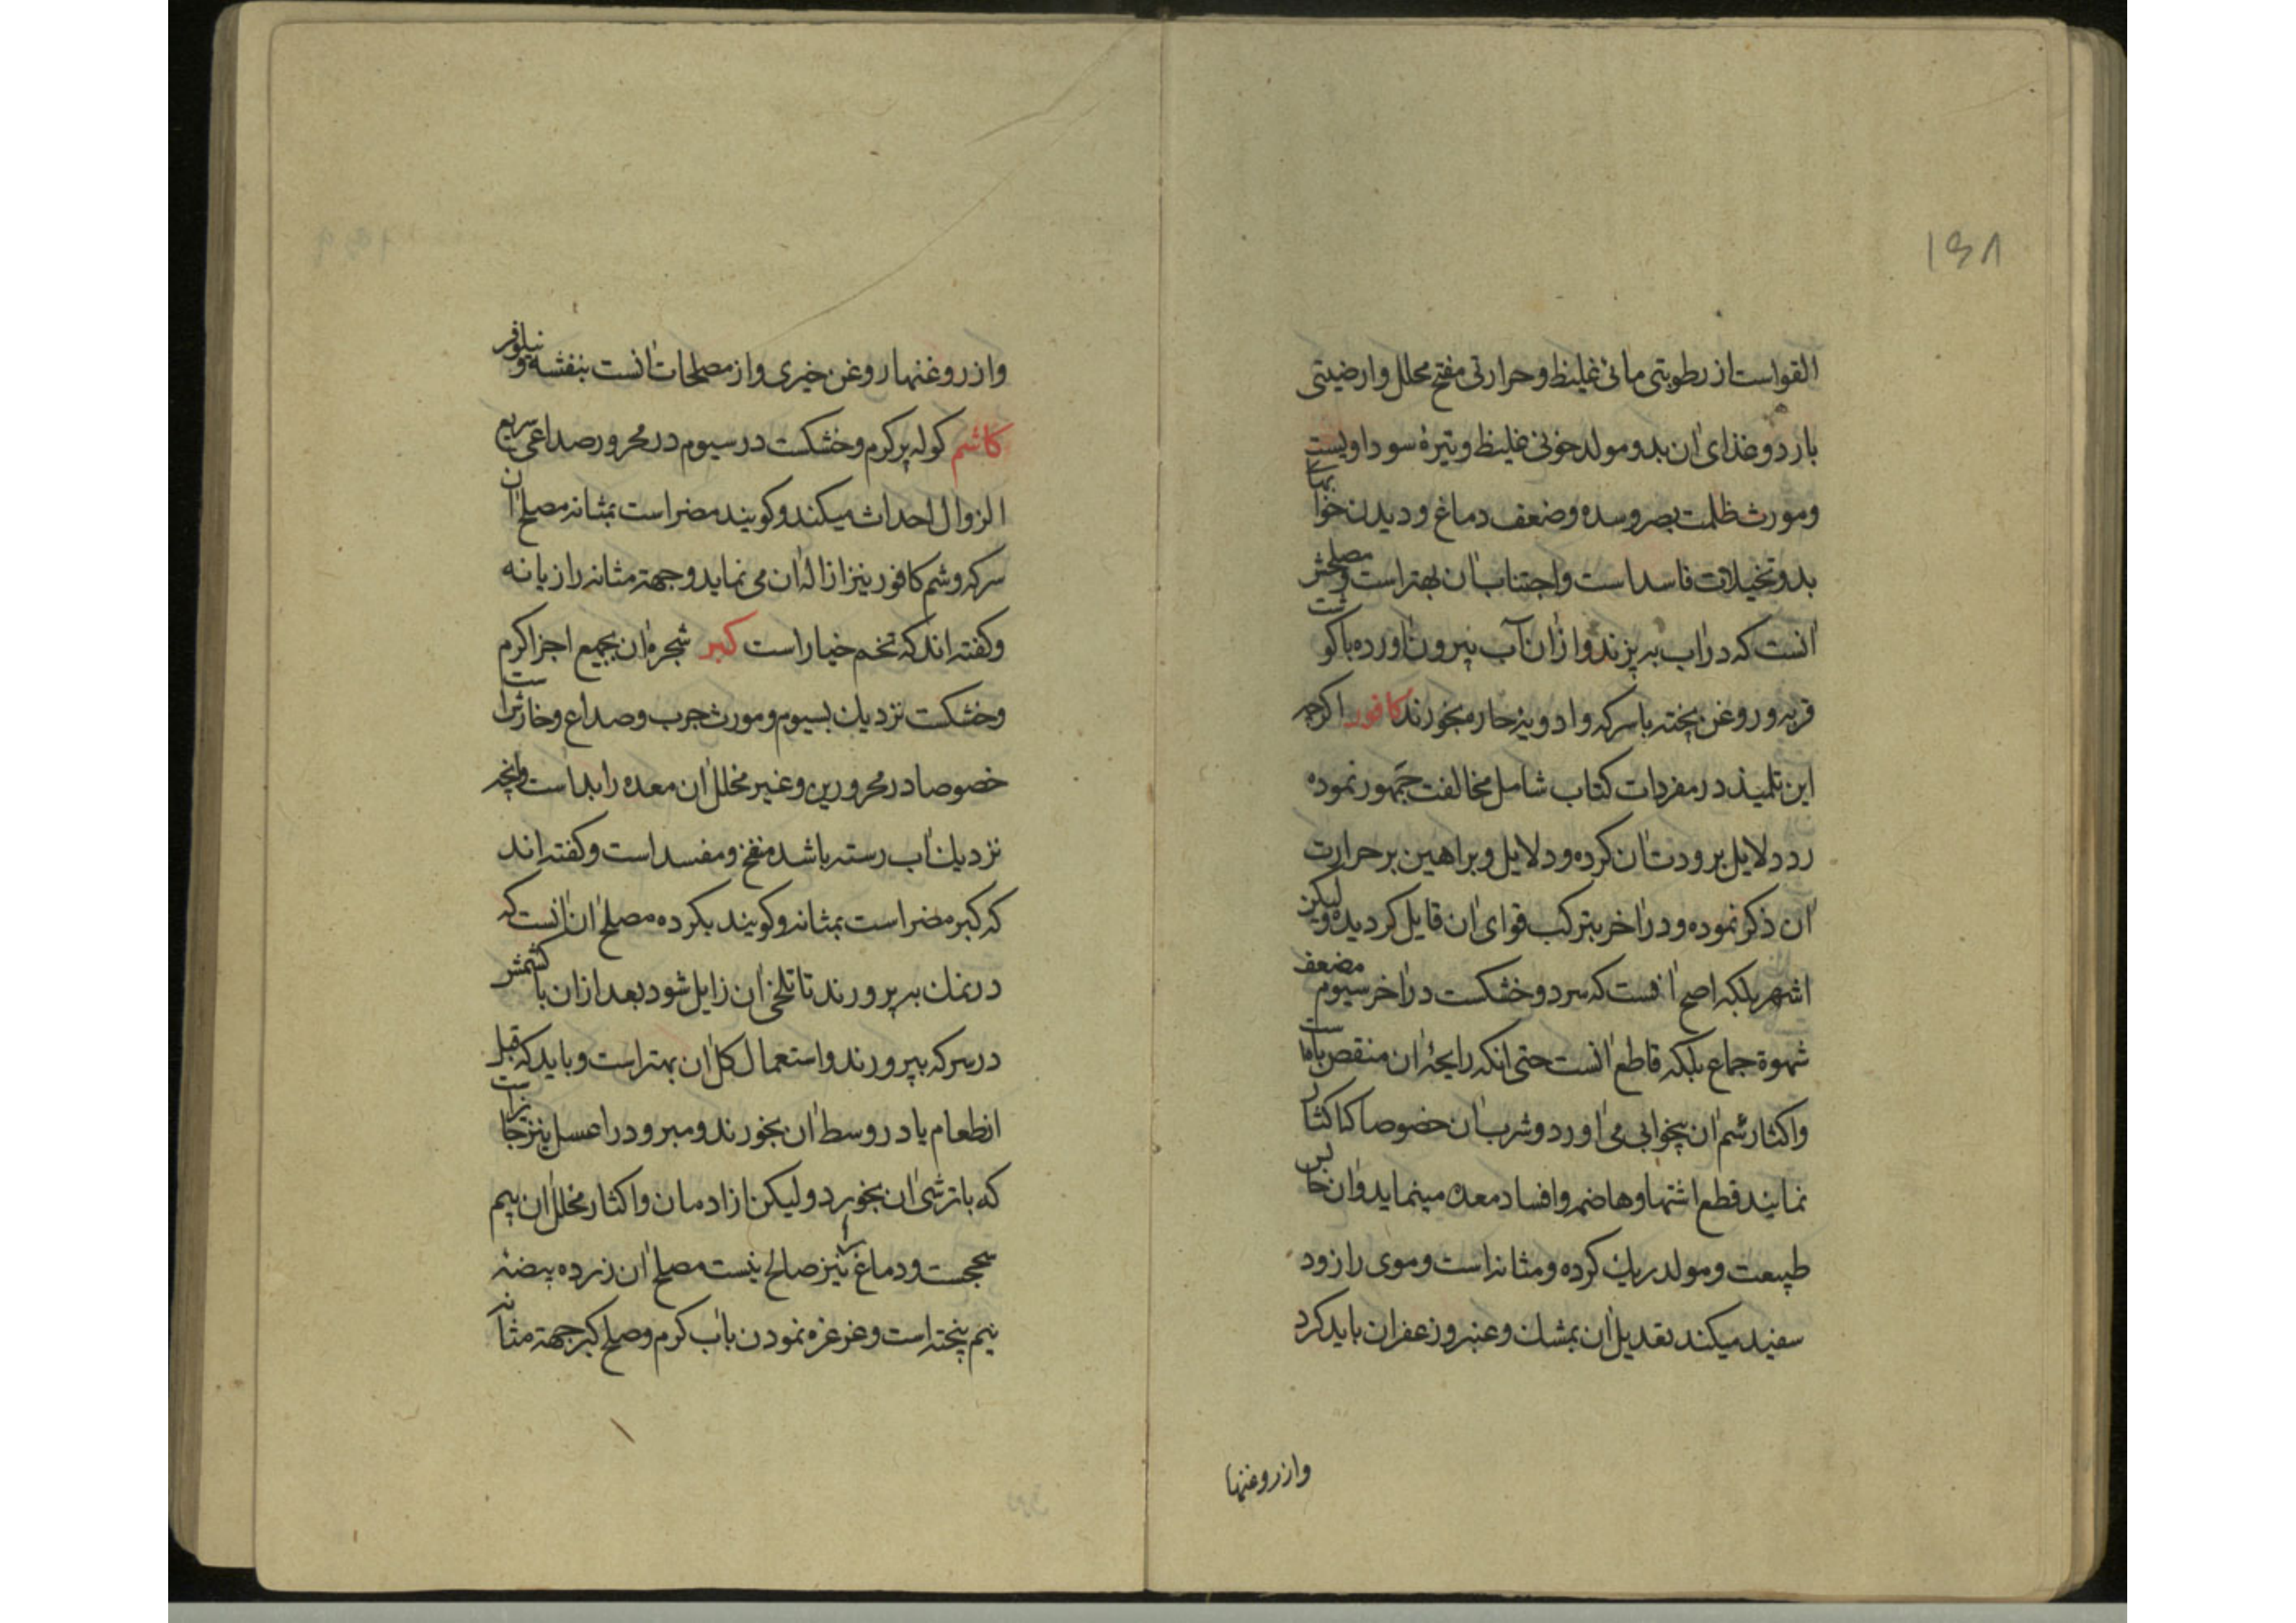 ۱۶۸
القواست از رطوبتی مائی غلیظ و حرارتی مفتح محلل و ارضیتی
بارد و غذای ان بد و مولد خونی غلیظ و تیره سوداویست
و مورث ظلمت بصر و سده و ضعف دماغ و دیدن خوابهای
بد و تخیلات فاسد است و اجتناب ان بهتر است و مصلحش
انست که در اب به پزند و از ان آب بیرون اورده با کوشت
فربه و روغن پخته با سرکه و ادویه حاره بخورند کافور اکرچه
ابن تلمیذ در مفردات کتاب شامل مخالفت جمهور نموده
رد دلایل برودت ان کرده و دلایل و براهین بر حرارت
ان ذکر نموده و در اخر بترکب قوای ان قایل کردیده و لیکن
اشهر بلکه اصح انست که سرد و خشکست در اخر سیوم مضعف
شهوة جماع بلکه قاطع انست حتی انکه رایحه ان منقص باه است
و اکثار شم ان بیخوابی می اورد و شرب ان خصوصا کاکثار
نمایند قطع اشتها و هاضمه و افساد معده مینماید و ان حابس
طبیعت و مولد ریک کرده و مثانه است و موی را زود
سفید میکند تعدیل ان بمشک و عنبر و زعفران باید کرد
و از روغنها
و از روغنها روغن خیری و از مصلحات انست بنفشه و نیلوفر
کاشم کوله پر کرم و خشکست در سیوم در محرور صداعی سریع
الزوال احداث میکند و کویند مضر است بمثانه مصلح ان
سرکه و شم کافور نیز ازاله ان می نماید و جهة مثانه رازیانه
و کفته اند که تخم خیار است کبر شجره ان بجمیع اجزا کرم
و خشکست نزدیک بسیوم و مورث جرب و صداع و خارش است
خصوصا در محرورین و غیر مخلل ان معده را بد است و انچه
نزدیک اب رسته باشد منفخ و مفسد است و کفته اند
که کبر مضر است بمثانه و کویند بکرده مصلح ان انست که
در نمک به پرورند تا تلخی ان زایل شود بعد از ان با کشمش
در سرکه بپرورند و استعمال کل ان بهتر است و باید که قبل
از طعام یا در وسط ان بخورند و مبرود را عسل نیز جایز است
که با ترشی ان بخورد و لیکن از ادمان و اکثار مخلل ان بیم
سحجست و دماغ را نیز صالح نیست مصلح ان زرده بیضه
نیم پخته است و غرغره نمودن باب کرم و مصلح کبر جهة مثانه